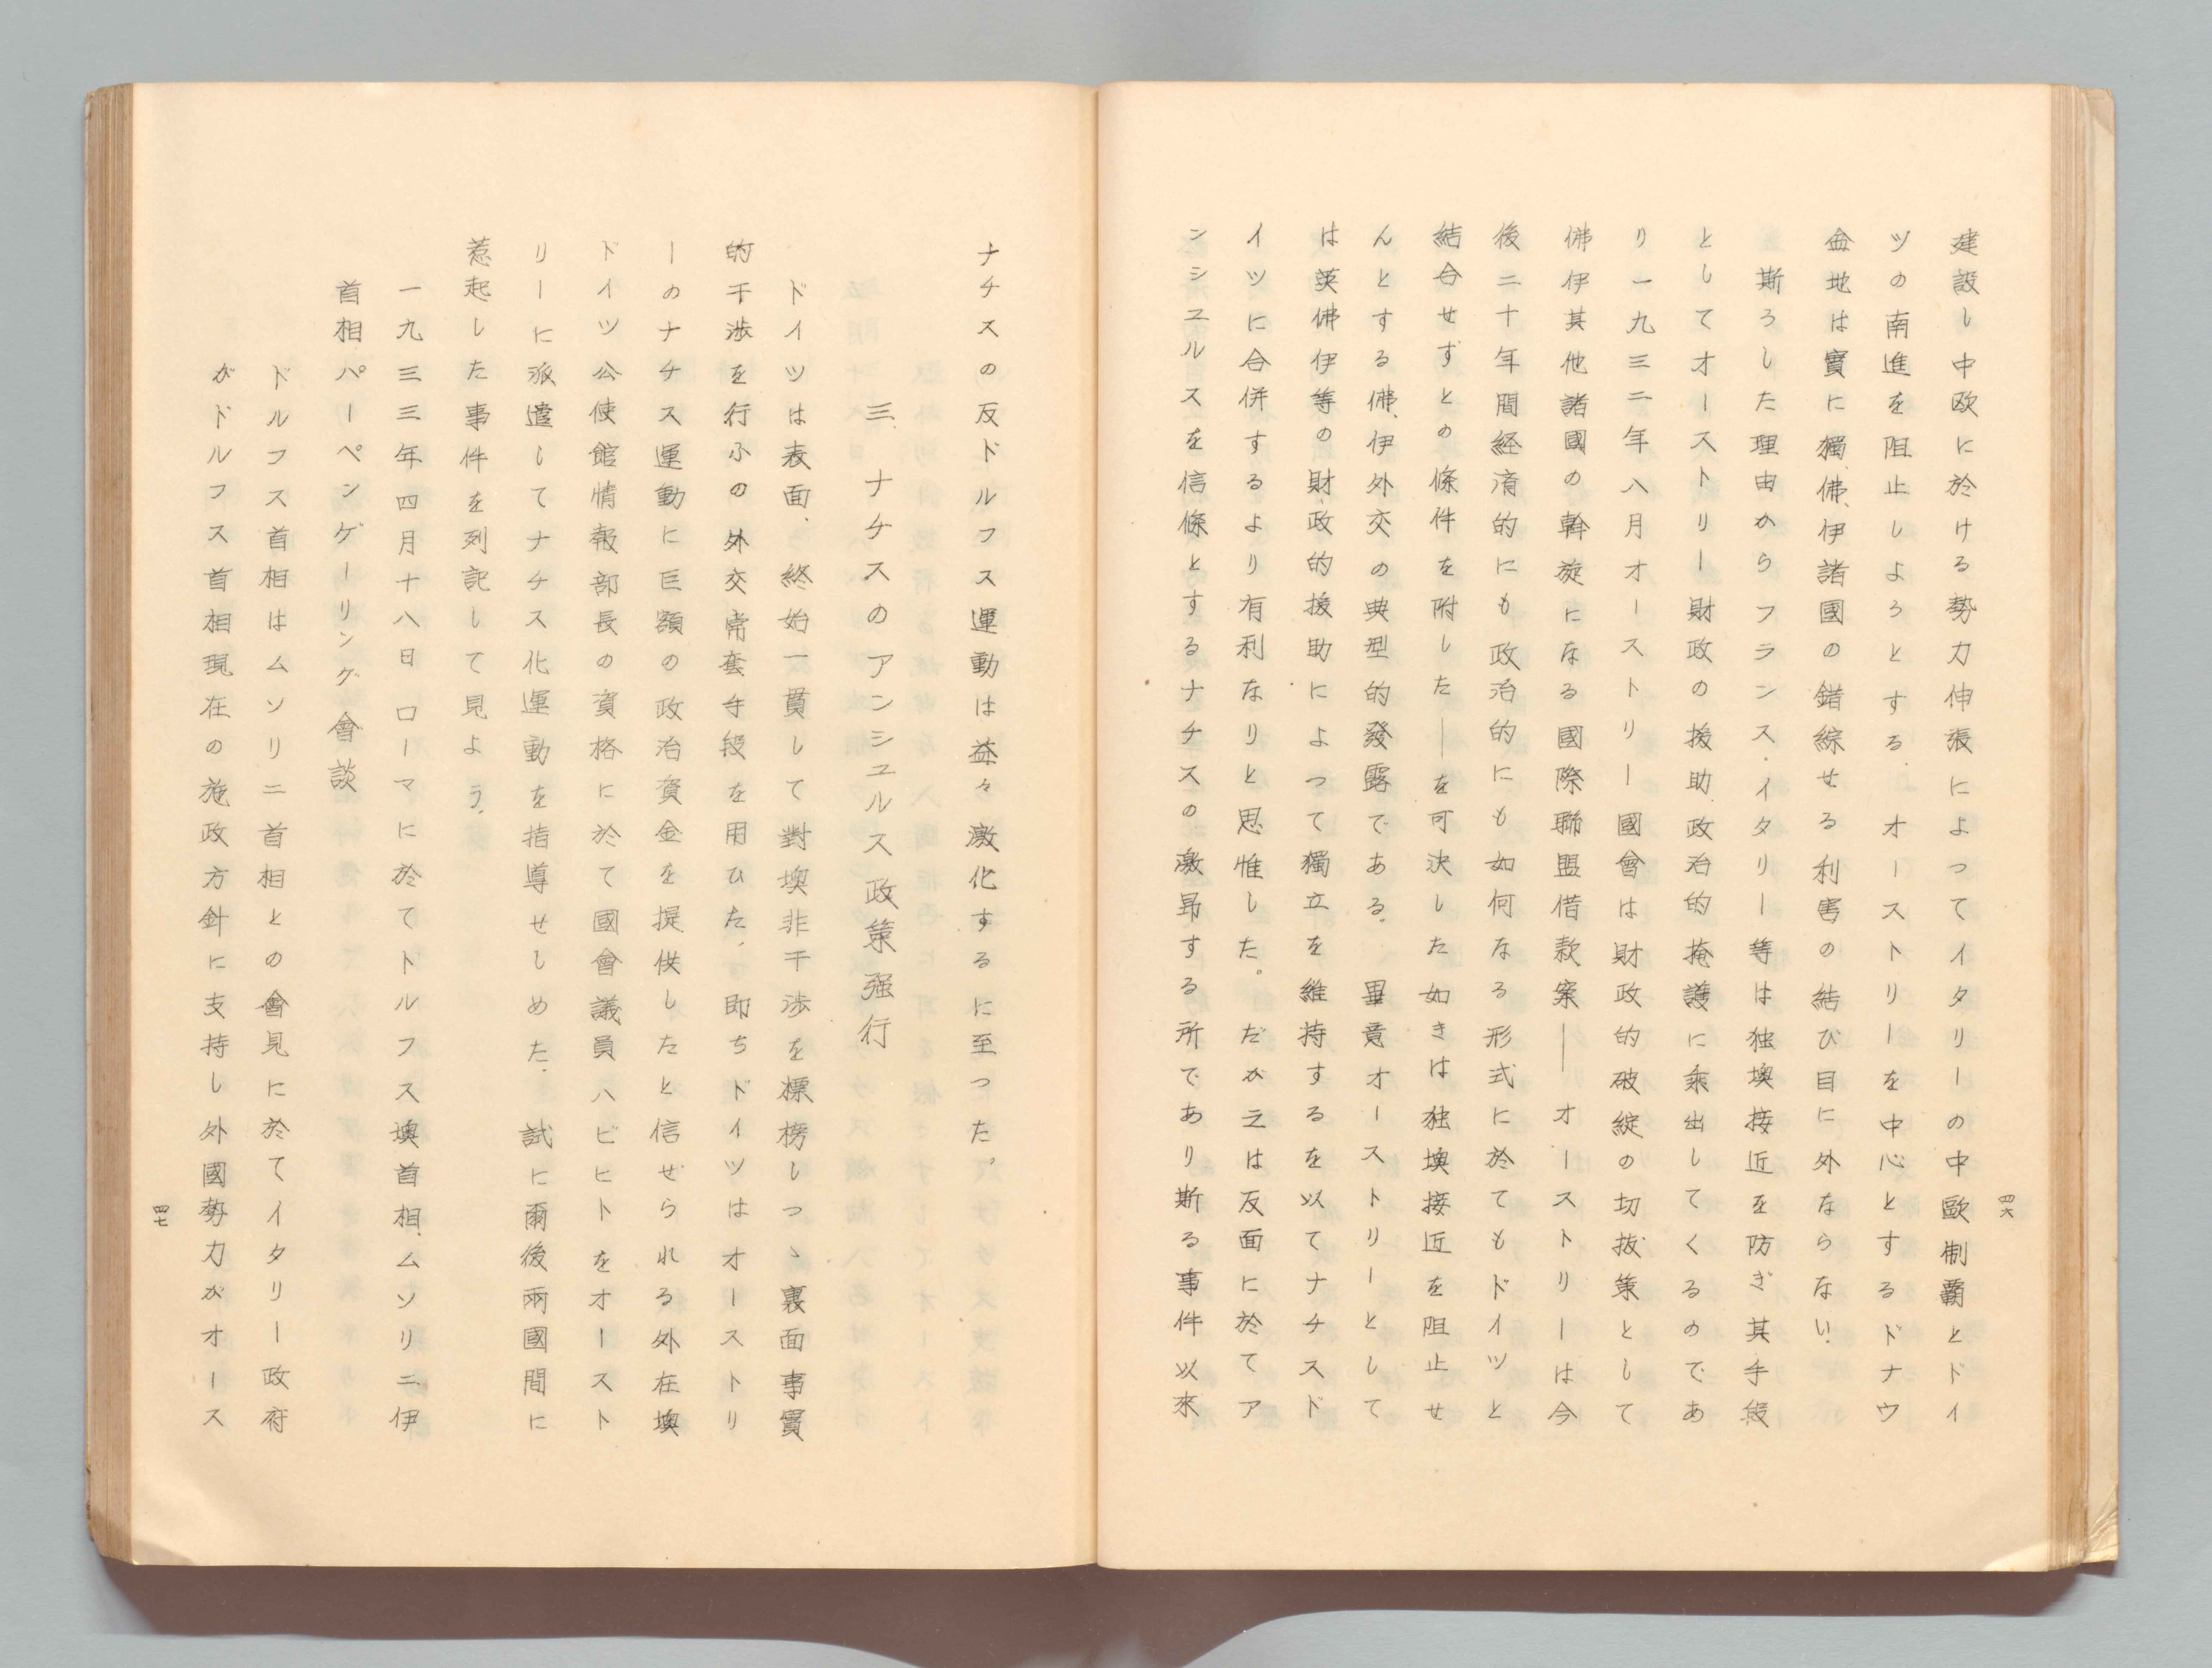 四六
建設し中欧に於ける勢力伸張によつてイタリーの中歐制覇とドイ
ツの南進を阻止しようとする．オーストリーを中心とするドナウ
盆地は實に獨、佛、伊諸國の錯綜せる利害の結び目に外ならない．
斯うした理由からフランス・イタリー等は独墺接近を防ぎ其手段
としてオーストリー財政の援助、政治的掩護に乘出してくるのであ
り一九三二年八月オーストリー國會は財政的破綻の切抜策として
佛伊其他諸國の幹旋になる國際聯盟借款案――オーストリーは今
後二十年間経済的にも政治的にも如何なる形式に於てもドイツと
結合せずとの條件を附した――を可決した如きは独墺接近を阻止せ
んとする佛、伊外交の典型的發露である．畢竟オーストリーとして
は英佛伊等の財政的援助によつて獨立を維持するを以てナチスド
イツに合併するより有利なりと思惟した。だが之は反面に於てア
ンシユルスを信條とするナチスの激昂する所であり斯る事件以來
ナチスの反ドルフス運動は益々激化するに至つた。
三、ナチスのアンシユルス政策强行
ドイツは表面、終始一貫して對墺非干渉を標榜しつゝ裏面事實
的干渉を行ふの外交常套手段を用ひた、即ちドイツはオーストリ
ーのナチス運動に巨額の政治資金を提供したと信ぜられる外在墺
ドイツ公使館情報部長の資格に於て國會議員ハビヒトをオースト
リーに派遣してナチス化運動を指導せしめた．試に爾後兩國間に
惹起した事件を列記して見よう．
一九三三年四月十八日ローマに於てドルフス墺首相、ムソリニ伊
首相、パーペンゲーリング會談
ドルフス首相はムソリニ首相との會見に於てイタリー政府
がドルフス首相現在の施政方針に支持し外國勢力がオース
四七